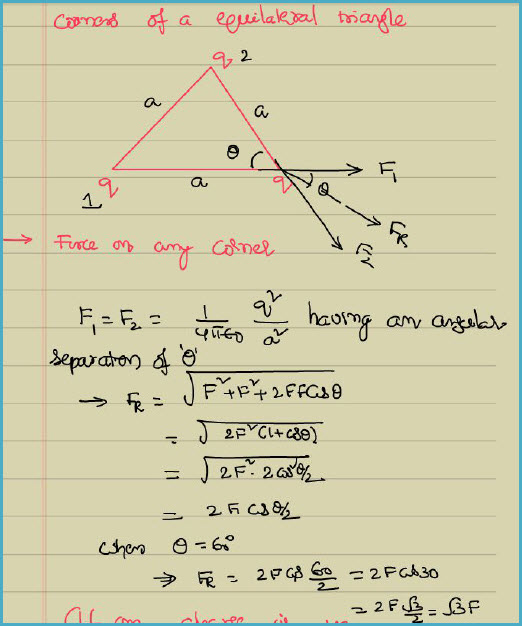 Corners of a equilateral triangle
q 2
a
a
θ
F₁
1 q
a
q
θ
F_R
F₂
→ Force on any corner
F₁ = F₂ = 1/4π∈₀ q²/a² having an angular
separation of 'θ'
→ F_R = √F²+F²+2FFCosθ
= √2F²(1+cosθ)
= √2F². 2cos²θ/2
= 2F cos θ/2
when θ = 60°
⇒ F_R = 2F cos 60/2 = 2F cos30
= 2F √3/2 = √3F